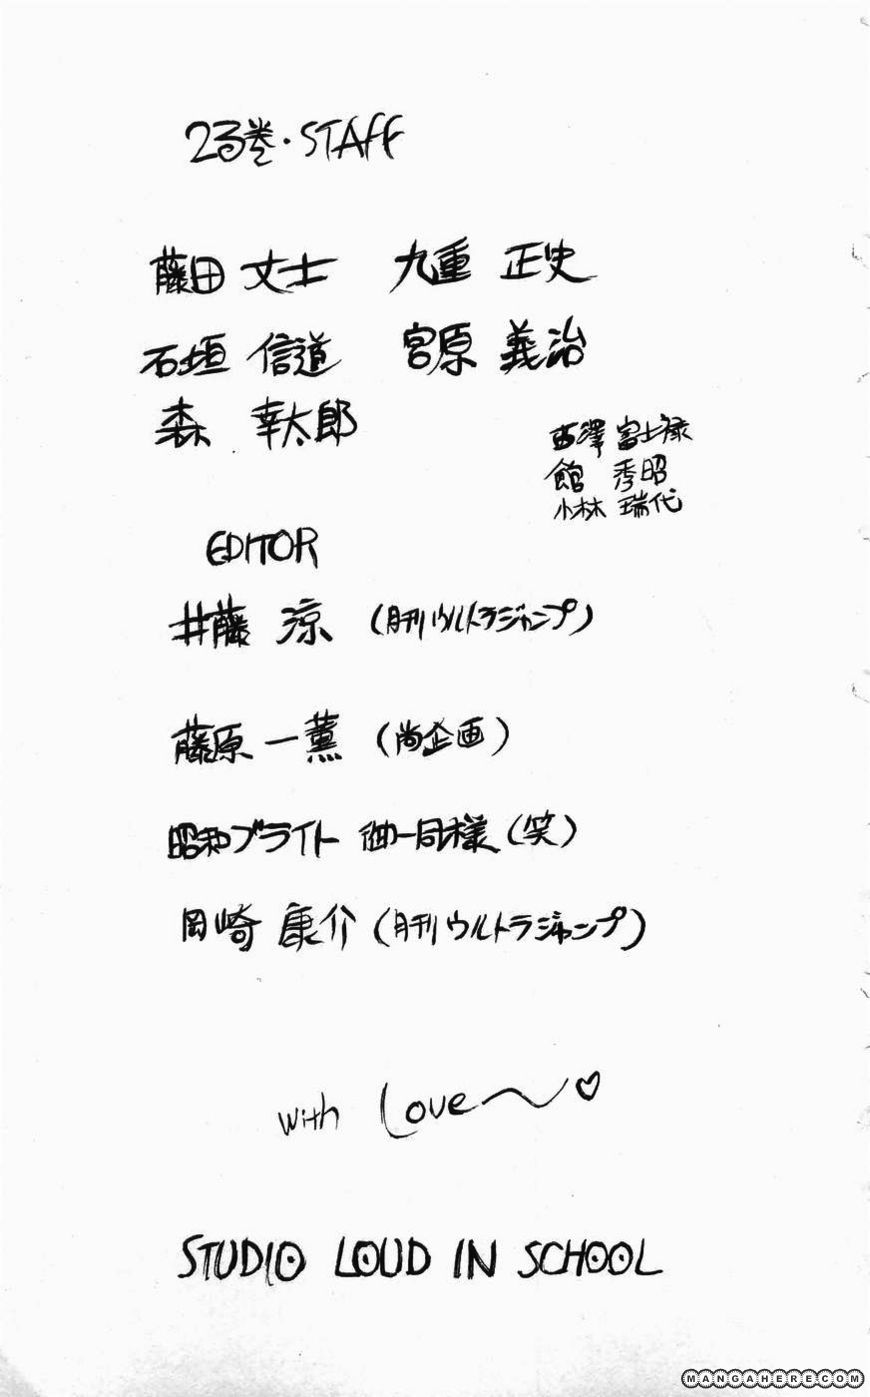 23巻・STAFF
藤田 丈士 九重 正史
石垣 信道 宮原 義治
森 幸太郎
西澤 富士禄
館 秀昭
小林 瑞代
EDITOR
井藤 涼 (月刊ウルトラジャンプ)
藤原 一薫 (尚企画)
昭和ブライト 御一同様 (笑)
岡崎 康介 (月刊ウルトラジャンプ)
with Love〜♡
STUDIO LOUD IN SCHOOL
MANGAHERE.COM